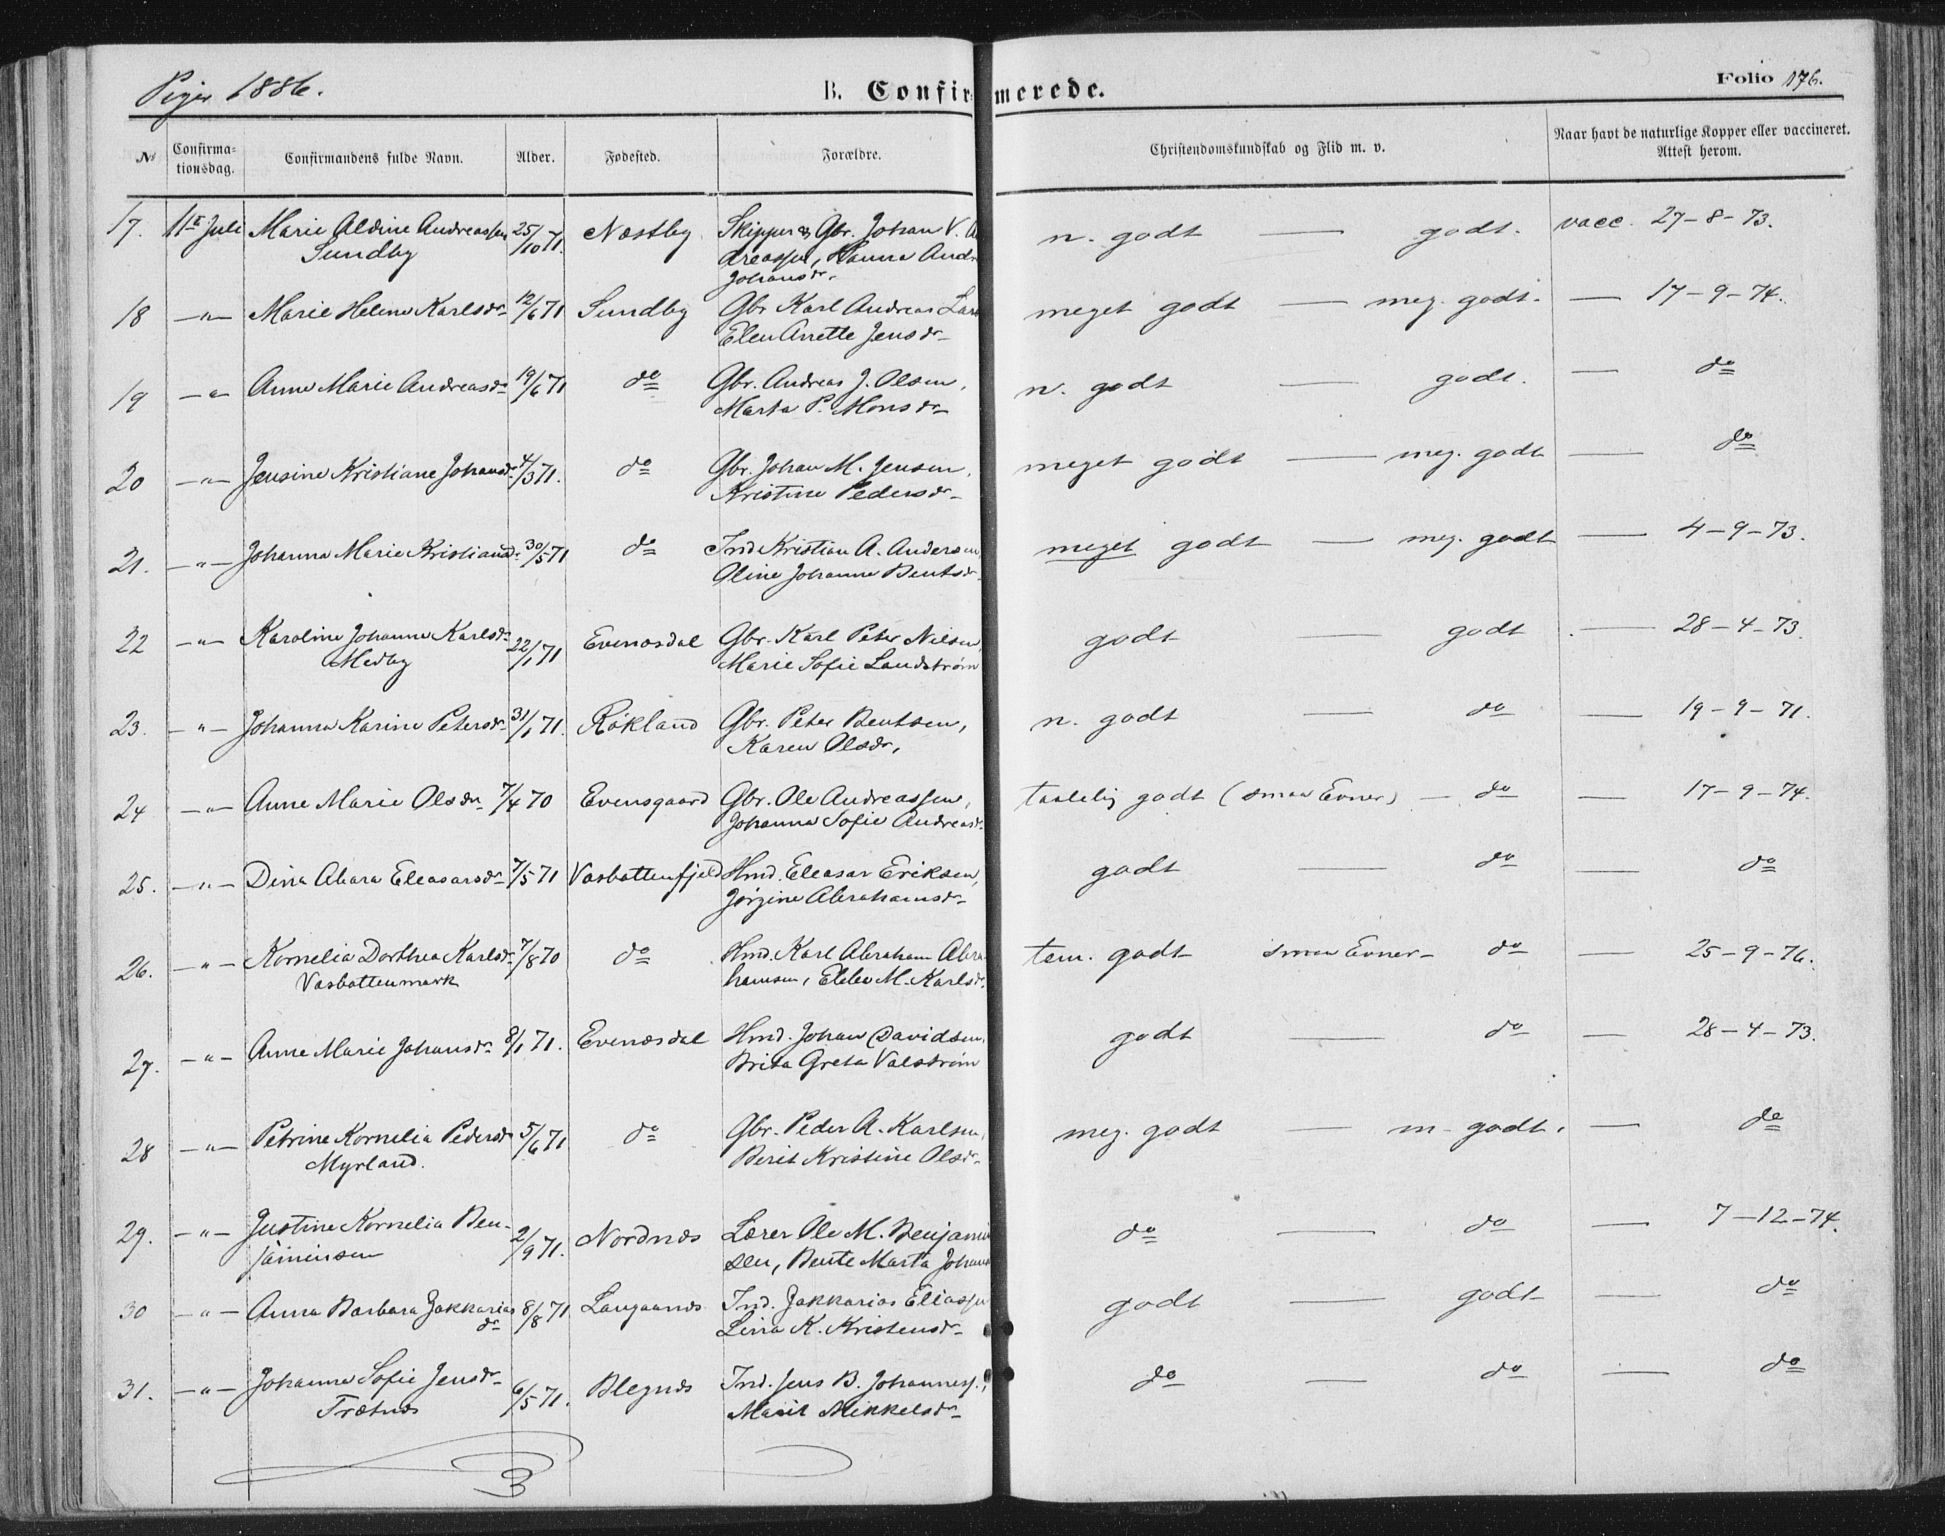 Piger 1886.
B. Confirmerede.
Folio 176.
№ Confirmationsdag. Confirmandens fulde Navn. Alder. Fødested. Forældre. Christendomskundskab og Flid m. v. Naar havt de naturlige Kopper eller vaccineret. Attest herom.
17. 11te Juli Marie Aldine Andreassen 25/10 71. Næstby Skipper & Gbr. Johan V. An n. godt — godt. vacc. 27-8-73.
Sundby dreassen, Hanna Andr
Johansdr.
18 —„— Marie Helene Karlsdr 12/6 71 Sundby Gbr Karl Andreas Lars meget godt — meg. godt. — 17-9-74.
Elen Anette Jensdr
19 —„— Anne Marie Andreasdr 19/6 71 do Gbr. Andreas J. Olsen, n. godt — godt. — do
Marta P. Monsdr
20 —„— Jensine Kristiane Johansdr 4/3 71. do Gbr. Johan M. Jensen, meget godt — meg. godt — do
Kristine Pedersdr
21. —„— Johanna Marie Kristiansdr 30/5 71 do Ind Kristian A. Andersen, meget godt — meg. godt — 4-9-73.
Oline Johanna Bentsdr
22 —„— Karoline Johanna Karlsdr 22/1 71 Evenæsdal Gbr. Karl Peter Nilsen, godt — godt — 28-4-73.
Medby Marie Sofie Landstrøm
23. —„— Johanna Karine Petersdr 31/1 71. Røkland Gbr. Peter Bentsen, n. godt — do — 19-9-71.
Karen Olsdr,
24 —„— Anne Marie Olsdr 7/4 70 Evensgaard Gbr. Ole Andreassen, taalelig godt (smaa Evner) — do — 17-9-74.
Johanna Sofie Andreasdr.
25. —„— Dina Abara Eleasarsdr 7/5 71 Vasbottenfjeld Hmd. Eleasar Eriksen, godt — do — do
Jørgine Abrahamsdr
26. —„— Kornelia Dorthea Karlsdr 7/8 70 do Hmd. Karl Abraham Abra tem. godt smaa Evner — do — 25-9-76.
Vasbottenmark hamsen, Ebba M. Karlsdr.
27. —„— Anne Marie Johansdr 8/1 71. Evenæsdal Hmd. Johan Davidsen, godt — do — 28-4-73.
Brita Greta Valstrøm
28 —„— Petrine Kornelia Pedersdr 5/6 71 do Gbr. Peder A. Karlsen, meg. godt — m. godt. — do
Myrland. Berit Kristine Olsdr
29. —„— Justine Kornelia Ben- 2/9 71. Nordnæs Lærer Ole M. Benjamin do — do — 7-12-74.
jaminsen sen, Bente Marta Johans
30 —„— Anna Barbara Zakkarias 8/8 71 Langaanæs Ind. Zakkarias Eliassen godt — godt — do
dr Lina K. Kristensdr
31. —„— Johanna Sofie Jensdr 6/5 71. Blegnæs Ind. Jens B. Johanness., do — do — do
Trætnæs Marit Mikkelsdr